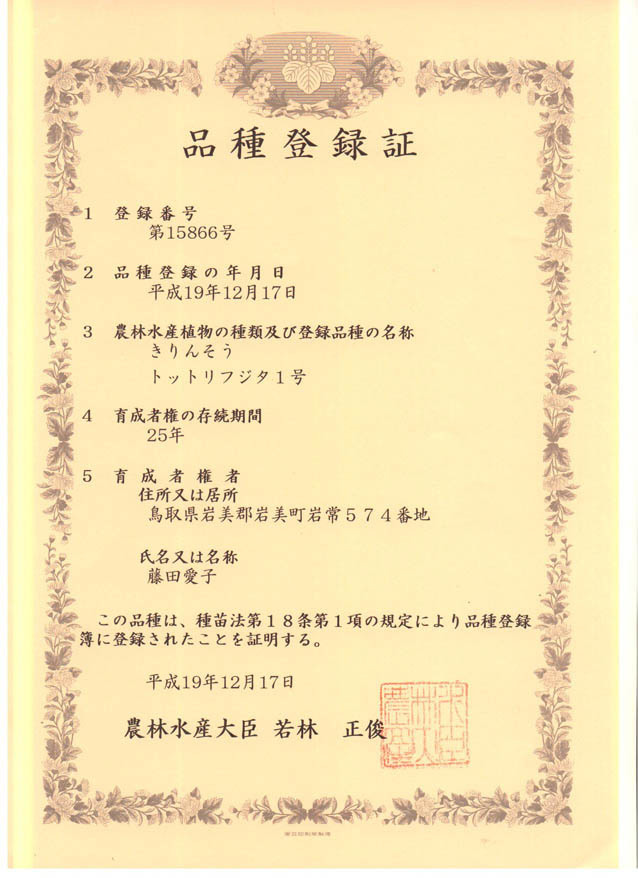 品種登録証
1 登録番号
第15866号
2 品種登録の年月日
平成19年12月17日
3 農林水産植物の種類及び登録品種の名称
きりんそう
トットリフジタ1号
4 育成者権の存続期間
25年
5 育成者権者
住所又は居所
鳥取県岩美郡岩美町岩常574番地
氏名又は名称
藤田愛子
この品種は、種苗法第18条第1項の規定により品種登録
簿に登録されたことを証明する。
平成19年12月17日
農林水産大臣 若林 正俊